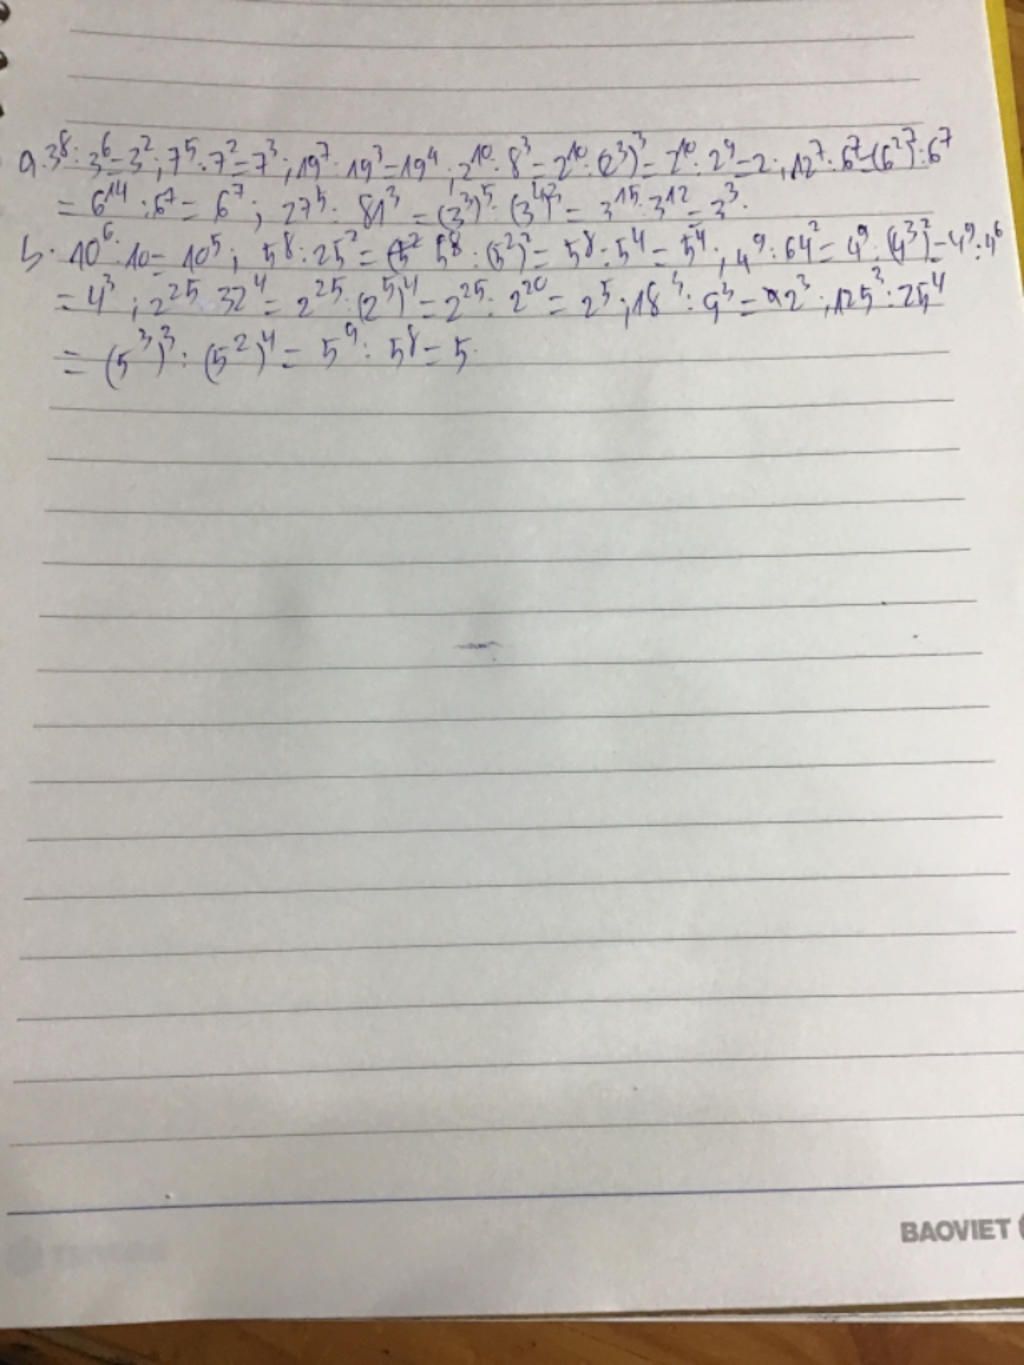 a. 3⁸ : 3⁶ = 3² ; 7⁵ : 7² = 7³ ; 19⁷ : 19³ = 19⁴ ; 2¹⁰ : 8³ = 2¹⁰ : (2³)³ = 2¹⁰ : 2⁹ = 2 ; 12⁷ : 6⁷ = (6²)⁷ : 6⁷
= 6¹⁴ : 6⁷ = 6⁷ ; 27⁵ : 81³ = (3³)⁵ : (3⁴)³ = 3¹⁵ : 3¹² = 3³.
b. 10⁶ : 10 = 10⁵ ; 5⁸ : 25² = 5⁸ : (5²)² = 5⁸ : 5⁴ = 5⁴ ; 4⁹ : 64² = 4⁹ : (4³)² = 4⁹ : 4⁶
= 4³ ; 2²⁵ : 32⁴ = 2²⁵ : (2⁵)⁴ = 2²⁵ : 2²⁰ = 2⁵ ; 18³ : 9³ = 2³ ; 125³ : 25⁴
= (5³)³ : (5²)⁴ = 5⁹ : 5⁸ = 5.
BAOVIET